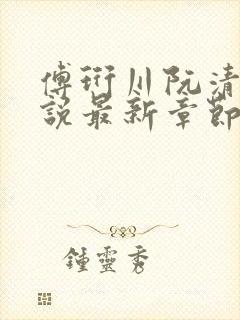 傅衍川阮清
說最新章節
鍾靈秀